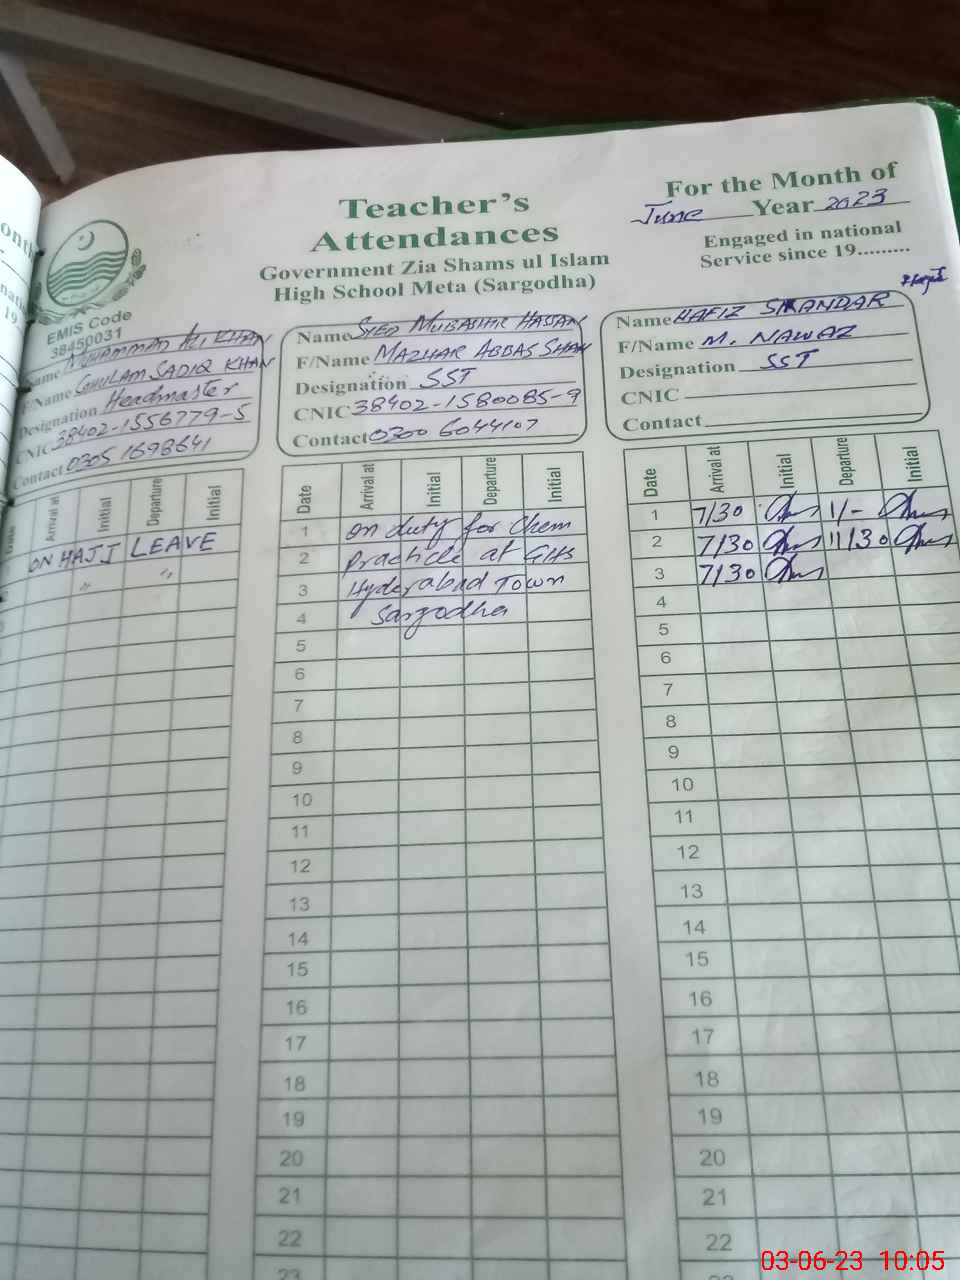 Teacher's
Attendances
Government Zia Shams ul Islam
High School Meta (Sargodha)
For the Month of
June Year 2023
Engaged in national
Service since 19.........
EMIS Code
38450031
Name MUHAMMAD ALI KHAN
F/Name GHULAM SADIQ KHAN
Designation Headmaster
CNIC 38402-1556779-5
Contact 0305 1698641
Arrival at Initial Departure Initial
ON HAJJ LEAVE
" "
Name SYED MUBASHAR HASSAN
F/Name MAZHAR ABBAS SHAH
Designation SST
CNIC 38402-1580085-9
Contact 0300 6044107
Date Arrival at Initial Departure Initial
1 on duty for Chem
2 Practicle at GHS
3 Hyderabad Town
4 Sargodha
5
6
7
8
9
10
11
12
13
14
15
16
17
18
19
20
21
22
23
Name HAFIZ SIKANDAR
F/Name M. NAWAZ
Designation SST
CNIC
Contact
Date Arrival at Initial Departure Initial
1 7/30 11/-
2 7/30 11/30
3 7/30
4
5
6
7
8
9
10
11
12
13
14
15
16
17
18
19
20
21
22
03-06-23 10:05